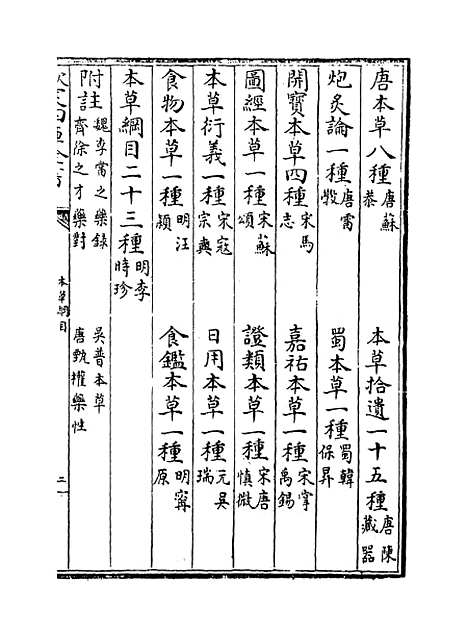 唐本草八種唐蘇恭 本草拾遺一十五種唐陳藏器
炮炙論一種唐雷斆 蜀本草一種蜀韓保昇
開寶本草四種宋馬志 嘉祐本草一種宋掌禹錫
圖經本草一種宋蘇頌 證類本草一種宋唐慎微
本草衍義一種宋寇宗奭 日用本草一種元吳瑞
食物本草一種明汪潁 食鑑本草一種明寗原
本草綱目二十三種明李時珍
附註魏李當之藥錄 吳普本草
齊徐之才藥對 唐甄權藥性
本草綱目